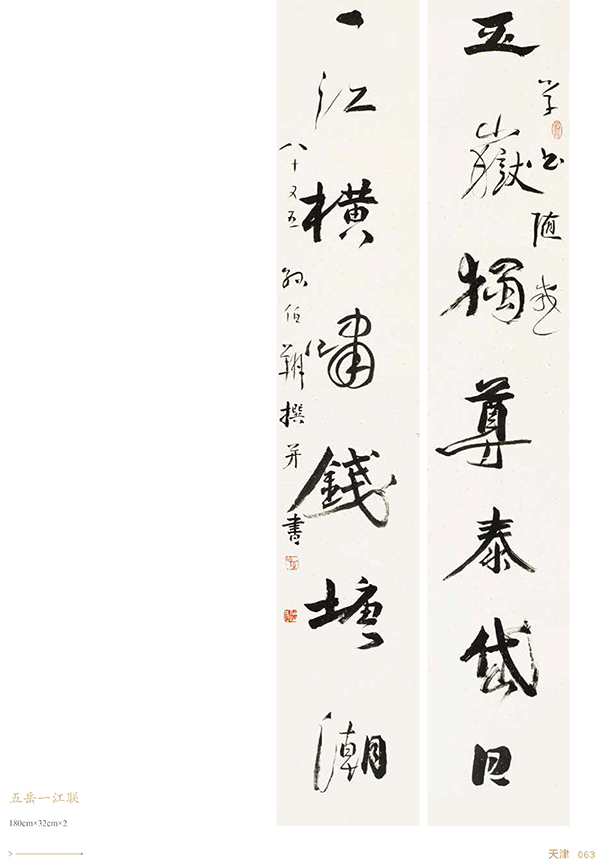 五嶽獨尊泰岱日
学书随感
一江橫嘯錢塘潮
八十又五 孫伯翔撰并書
五岳一江联
180cm×32cm×2
天津 063